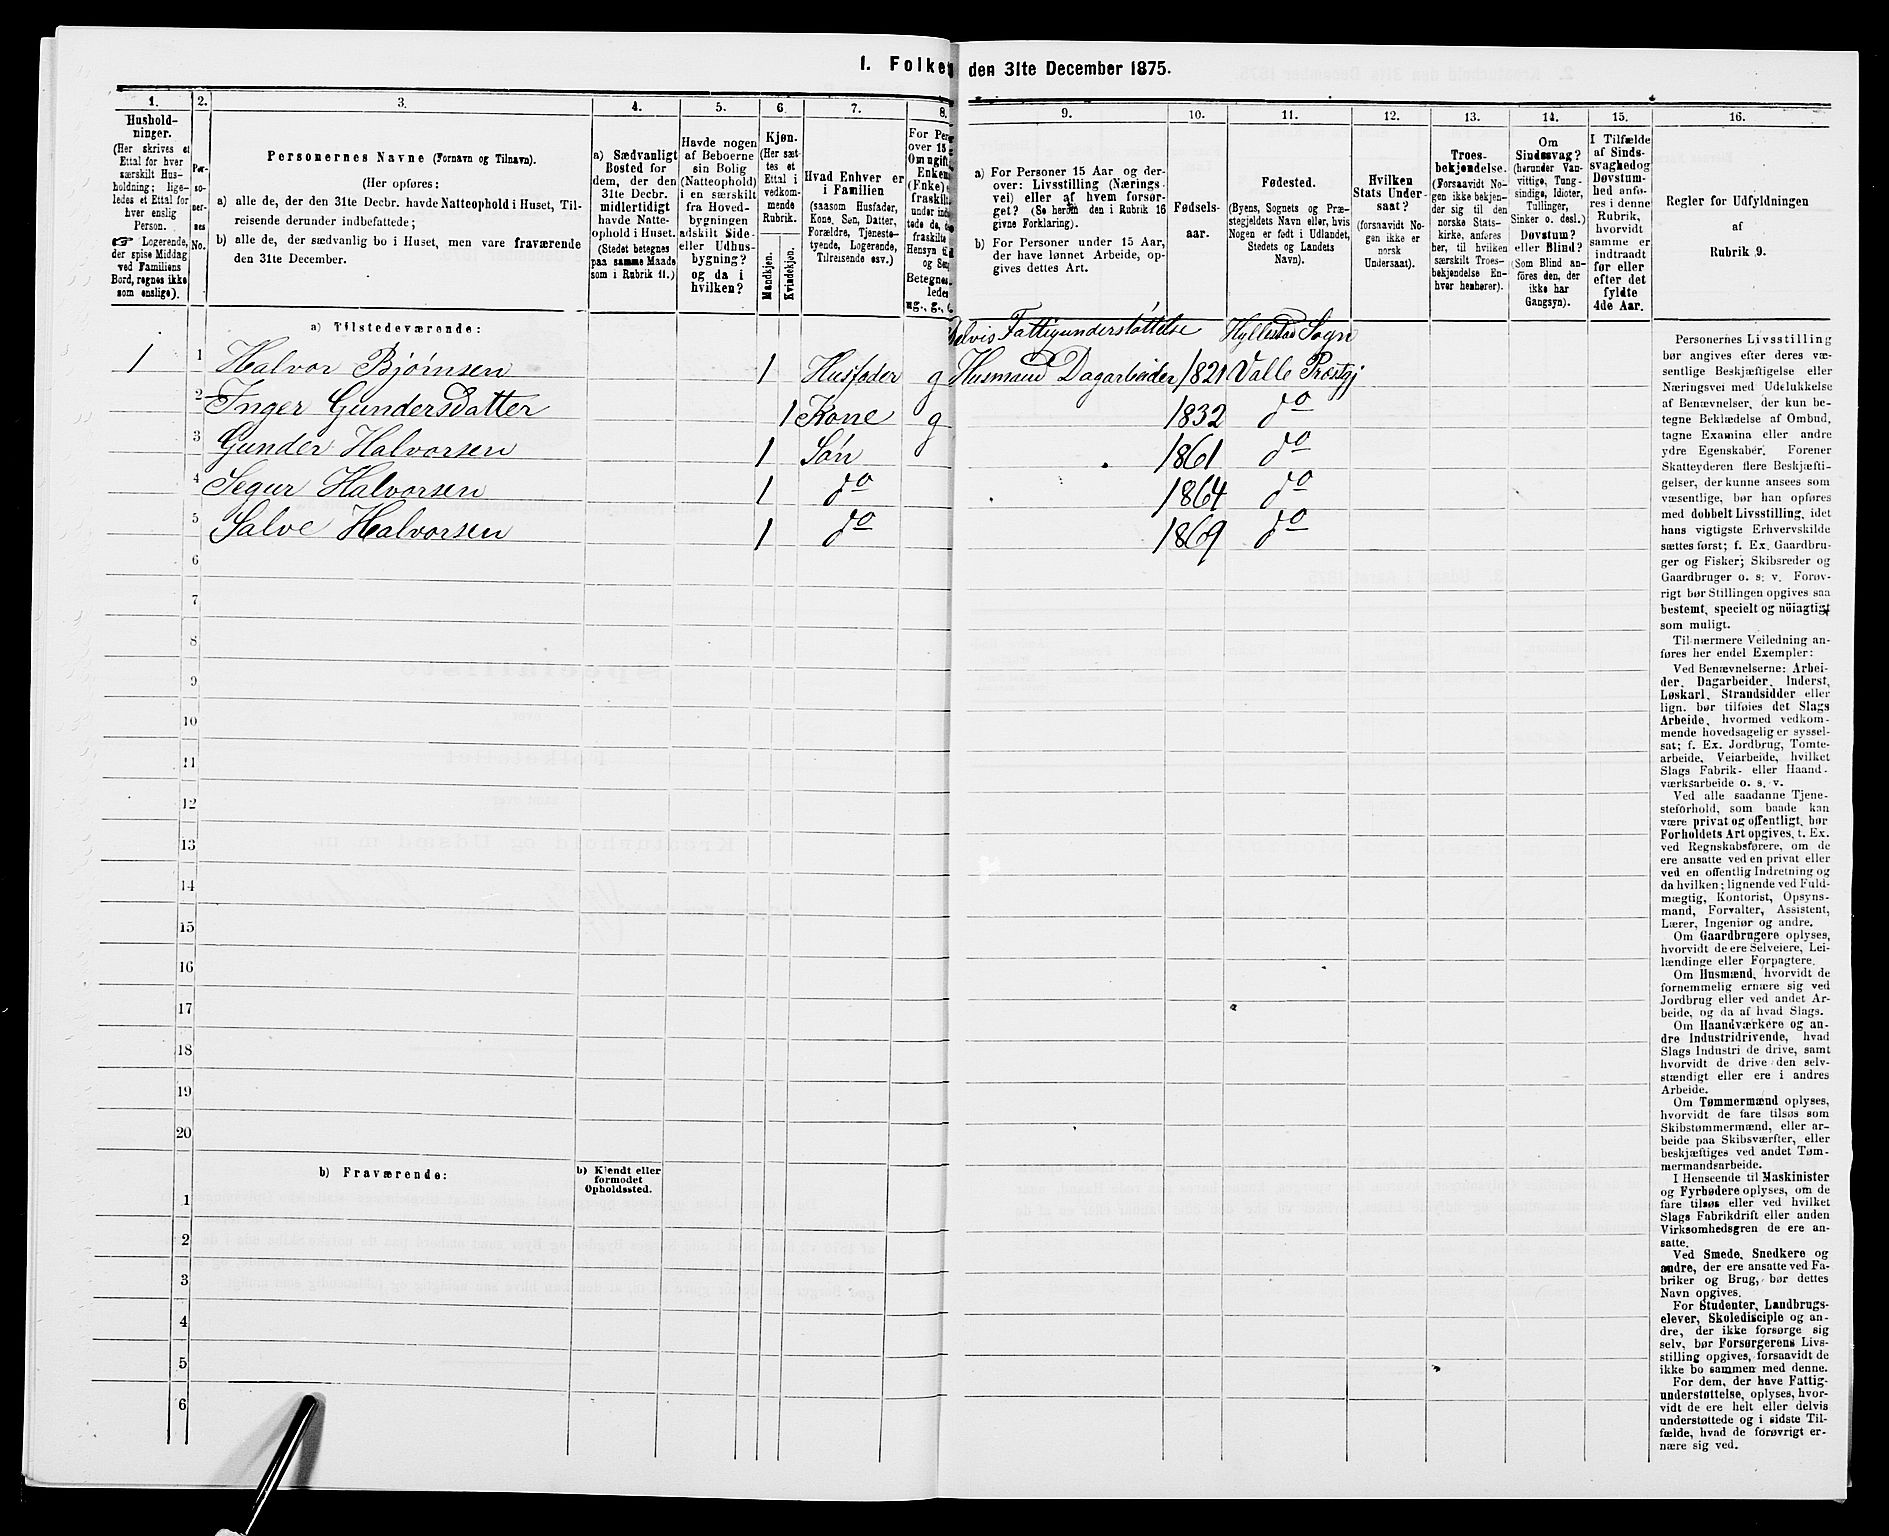 1. Folke
den 31te December 1875.
1.
Hushold-
ninger.
(Her skrives et
Ettal for hver
særskilt Hus-
holdning; lige-
ledes et Ettal for
hver enslig
Person.
☞ Logerende,
der spise Middag
ved Familiens
Bord, regnes ikke
som enslige).
2.
Per-
so-
ner-
nes
No.
3.
Personernes Navne (Fornavn og Tilnavn).
(Her opføres:
a) alle de, der den 31te Decbr. havde Natteophold i Huset, Til-
reisende derunder indbefattede;
b) alle de, der sædvanlig bo i Huset, men vare fraværende
den 31te December.
4.
a) Sædvanligt
Bosted for
dem, der den
31te Decbr.
midlertidigt
havde Natte-
ophold i Huset.
(Stedet betegnes
paa samme Maade
som i Rubrik 11.)
5.
Havde nogen
af Beboerne
sin Bolig
(Natteophold)
i en særskilt
fra Hoved-
bygningen
adskilt Side-
eller Udhus-
bygning?
og da i
hvilken?
6.
Kjøn.
(Her sæt-
tes et
Ettal i
vedkom-
mende
Rubrik.
Mandkjøn.
Kvindekjøn.
7.
Hvad Enhver er
i Familien
(saasom Husfader,
Kone, Søn, Datter,
Forældre, Tjeneste-
tyende, Logerende,
Tilreisende osv.)
8.
For Per
over 15
Om ugift
Enkem
(Enke) e
fraskilt
under ind
tede de,
fraskilte
Hensyn til
og Se
Betegnes
ledes
ug., g.,
9.
a) For Personer 15 Aar og der-
over: Livsstilling (Nærings-
vei) eller af hvem forsør-
get? (Se herom den i Rubrik 16
givne Forklaring).
b) For Personer under 15 Aar,
der have lønnet Arbeide, op-
gives dettes Art.
10.
Fødsels-
aar.
11.
Fødested.
(Byens, Sognets og Præ-
stegjeldets Navn eller, hvis
Nogen er født i Udlandet,
Stedets og Landets
Navn).
12.
Hvilken
Stats Under-
saat?
(forsaavidt No-
gen ikke er
norsk
Undersaat).
13.
Troes-
bekjendelse.
(Forsaavidt No-
gen ikke bekjen-
der sig til den
norske Stats-
kirke, anføres
her, til hvilken
særskilt Troes-
bekjendelse En-
hver henhører).
14.
Om
Sindssvag?
(herunder Van-
vittige, Tung-
sindige, Idioter,
Tullinger,
Sinker o. desl.)
Døvstum?
eller Blind?
(Som Blind an-
føres den, der
ikke har
Gangsyn).
15.
I Tilfælde
af Sinds-
svaghed og
Døvstum-
hed anfø-
res i denne
Rubrik,
hvorvidt
samme er
indtraadt
før eller
efter det
fyldte
4de Aar.
16.
Regler for Udfyldningen
af
Rubrik 9.
a) Tilstedeværende:
Delvis Fattigunderstøttelse Hyllestad Sogn
1 1 Halvor Bjørnsen 1 Husfader g Husmand Dagarbeider 1821 Valle Præstgj
2 Inger Gundersdatter 1 Kone g 1832 do
3 Gunder Halvorsen 1 Søn 1861 do
4 Segur Halvorsen 1 do 1864 do
5 Salve Halvorsen 1 do 1869 do
6
7
8
9
10
11
12
13
14
15
16
17
18
19
20
b) Fraværende:
b) Kjendt eller
formodet
Opholdssted.
1
2
3
4
5
6
Personernes Livsstilling
bør angives efter deres væ-
sentlige Beskjæftigelse eller
Næringsvei med Udelukkelse
af Benævnelser, der kun be-
tegne Beklædelse af Ombud,
tagne Examina eller andre
ydre Egenskaber. Forener
Skatteyderen flere Beskjæfti-
gelser, der kunne ansees som
væsentlige, bør han opføres
med dobbelt Livsstilling, idet
hans vigtigste Erhvervskilde
sættes først; f. Ex. Gaardbru-
ger og Fisker; Skibsreder og
Gaardbruger o. s. v. Forøv-
rigt bør Stillingen opgives saa
bestemt, specielt og nöiagtigt
som muligt.
Til nærmere Veiledning an-
føres her endel Exempler:
Ved Benævnelserne: Arbei-
der, Dagarbeider, Inderst,
Løskarl, Strandsidder eller
lign. bør tilføies det Slags
Arbeide, hvormed vedkom-
mende hovedsagelig er syssel-
sat; f. Ex. Jordbrug, Tomte-
arbeide, Veiarbeide, hvilket
Slags Fabrik- eller Haand-
værksarbeide o. s. v.
Ved alle saadanne Tjene-
steforhold, som baade kan
være privat og offentligt, bør
Forholdets Art opgives, t. Ex.
ved Regnskabsførere, om de
ere ansatte ved en privat eller
ved en offentlig Indretning og
da hvilken; lignende ved Fuld-
mægtig, Kontorist, Opsyns-
mand, Forvalter, Assistent,
Lærer, Ingeniør og andre.
Om Gaardbrugere oplyses,
hvorvidt de ere Selveiere, Lei-
lændinge eller Forpagtere.
Om Husmænd, hvorvidt de
fornemmelig ernære sig ved
Jordbrug eller ved andet Ar-
beide, og da af hvad Slags.
Om Haandværkere og an-
dre Industridrivende, hvad
Slags Industri de drive, samt
hvorvidt de drive den selv-
stændigt eller ere i andres
Arbeide.
Om Tømmermænd oplyses,
hvorvidt de fare tilsøs som
Skibstømmermænd, eller ar-
beide paa Skibsværfter, eller
beskjæftiges ved andet Tøm-
mermandsarbeide.
I Henseende til Maskinister
og Fyrbødere oplyses, om de
fare tilsøs eller ved hvilket
Slags Fabrikdrift eller anden
Virksomhedsgren de ere an-
satte.
Ved Smede, Snedkere og
andre, der ere ansatte ved Fa-
briker og Brug, bør dettes
Navn opgives.
For Studenter, Landbrugs-
elever, Skoledisciple og an-
dre, der ikke forsørge sig
selv, bør Forsørgerens Livs-
stilling opgives, forsaavidt de
ikke bo sammen med denne.
For dem, der have Fattig-
understøttelse, oplyses, hvor-
vidt de ere helt eller delvis
understøttede og i sidste Til-
fælde, hvad de forøvrigt er-
nære sig ved.